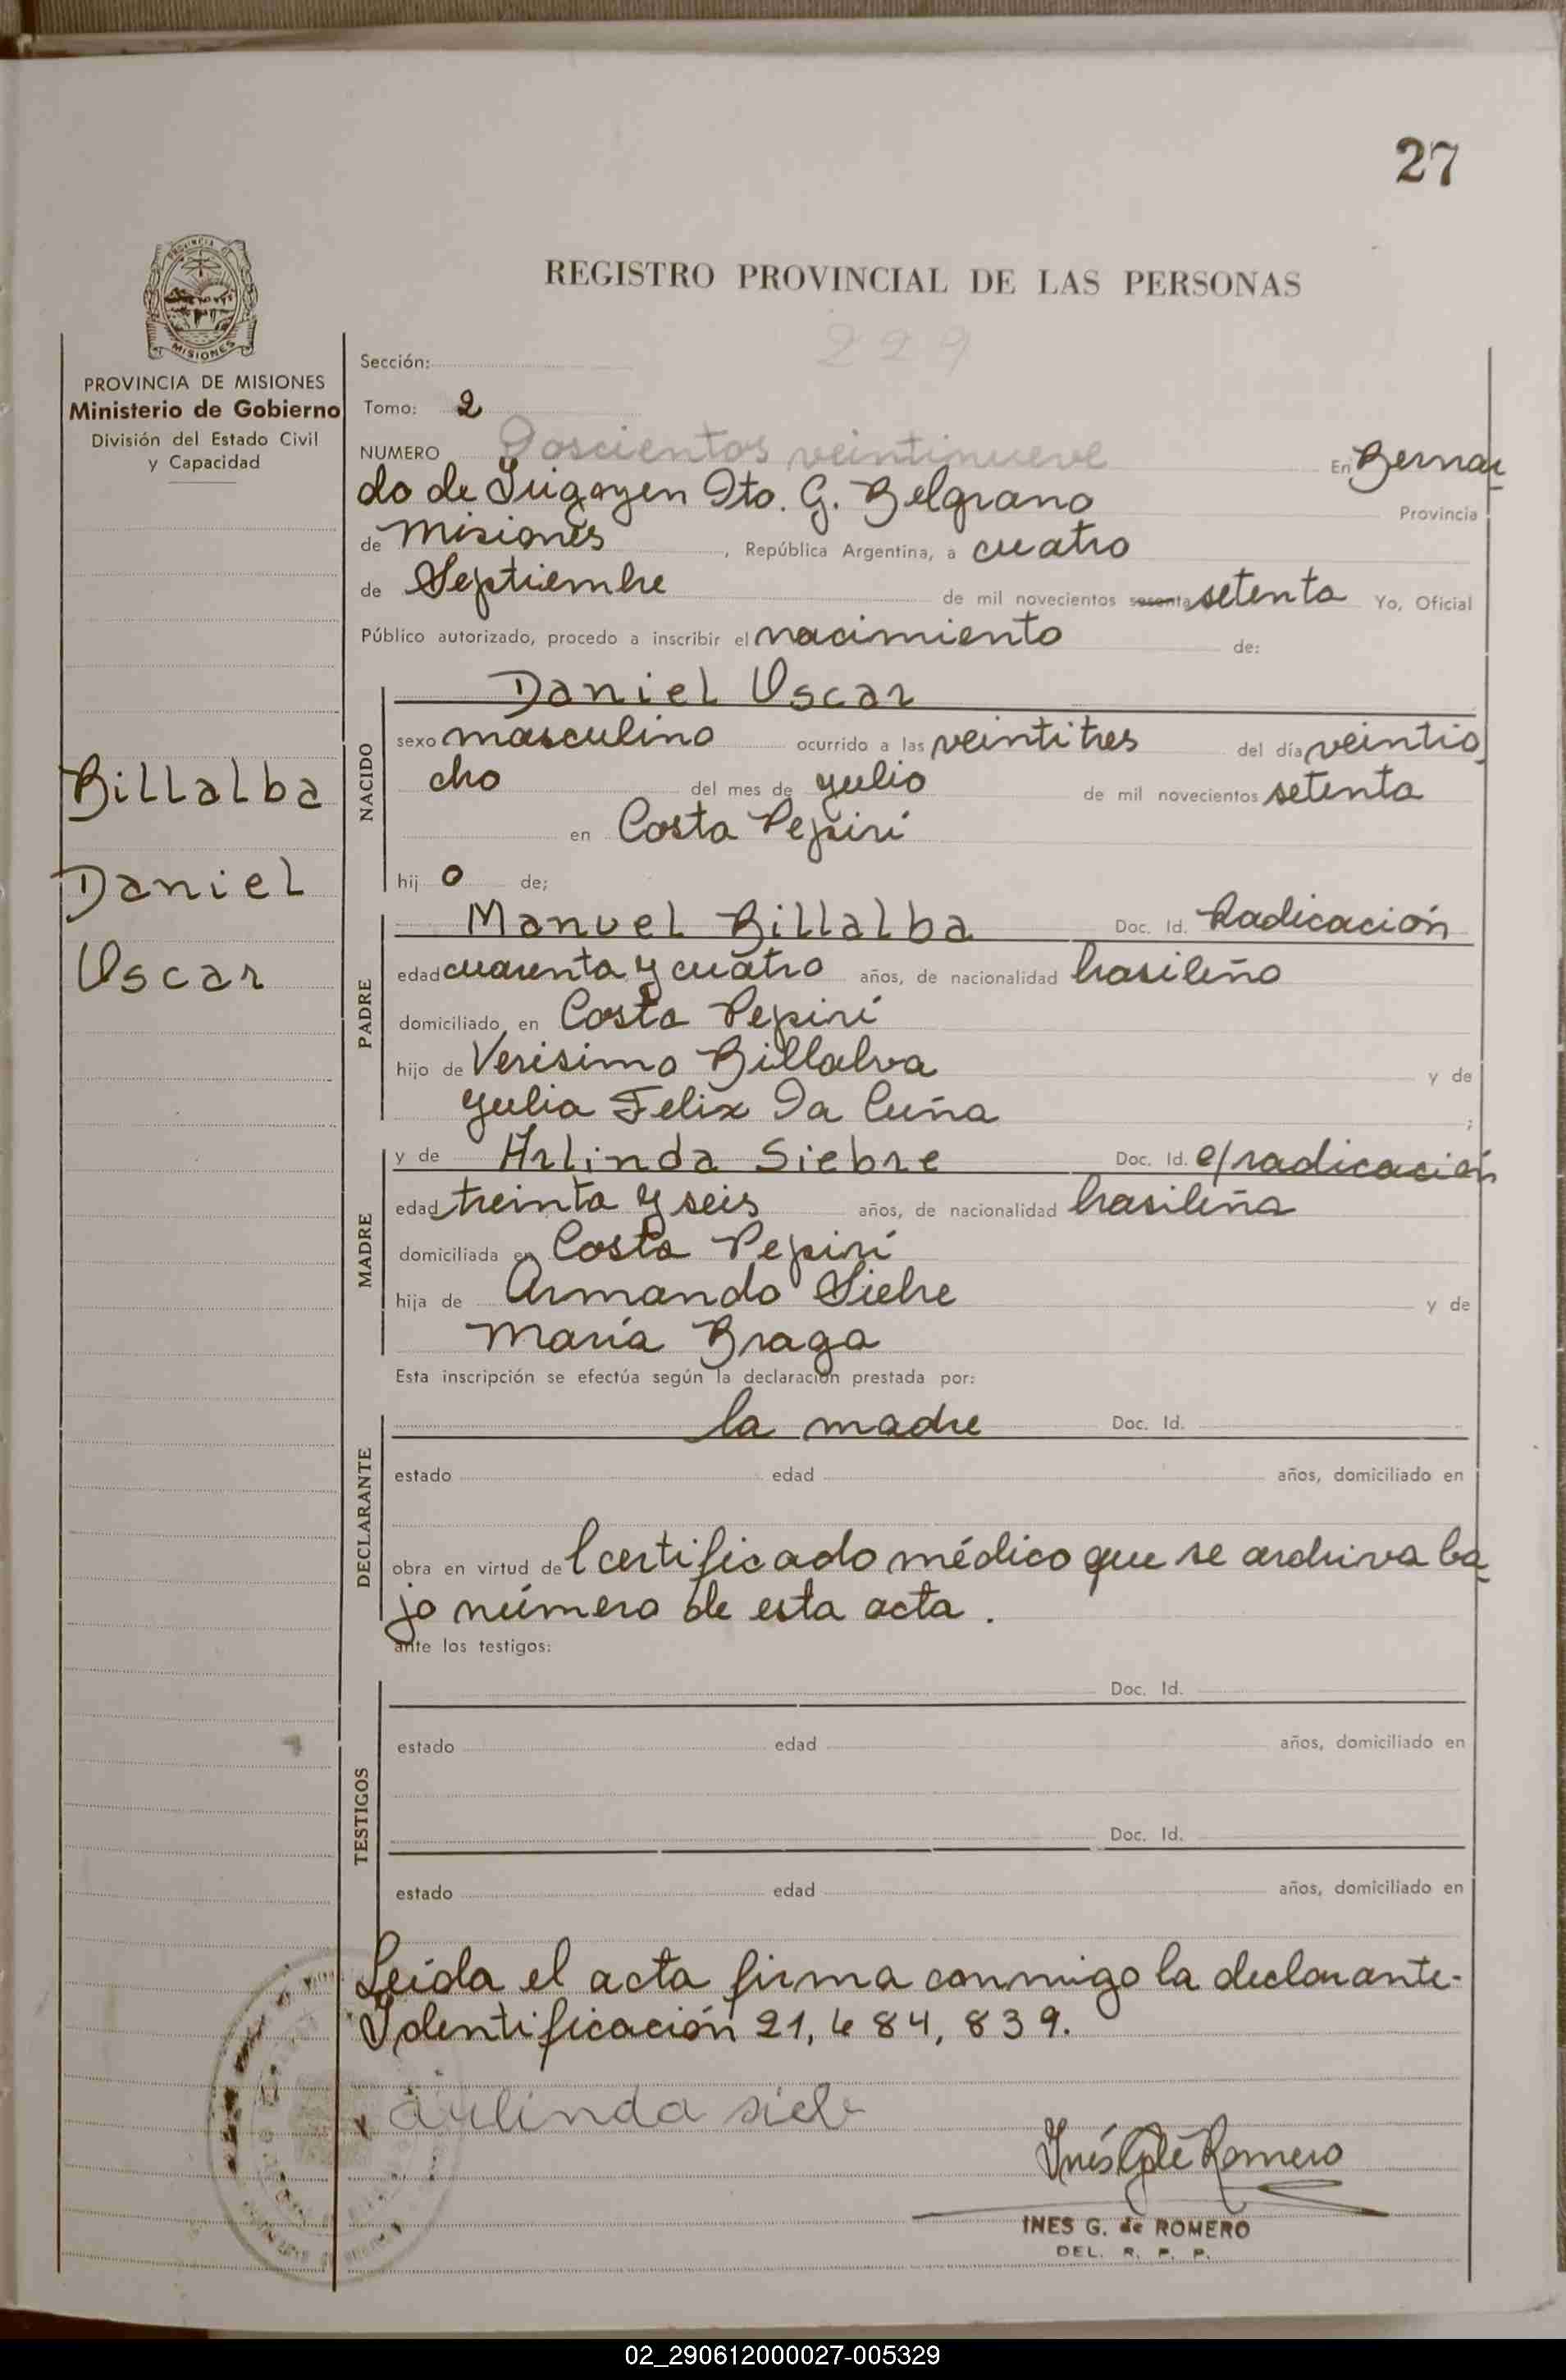 27
REGISTRO PROVINCIAL DE LAS PERSONAS
229
PROVINCIA DE MISIONES
Ministerio de Gobierno
División del Estado Civil
y Capacidad
Sección:
Tomo: 2
NUMERO Doscientos veintinueve En Bernar-
do de Irigoyen Dto. G. Belgrano Provincia
de Misiones, República Argentina, a cuatro
de Septiembre de mil novecientos sesenta setenta Yo, Oficial
Público autorizado, procedo a inscribir el nacimiento de:
NACIDO
Daniel Oscar
sexo masculino ocurrido a las veintitres del día veintio-
cho del mes de julio de mil novecientos setenta
en Costa Pepirí
hij o de;
Billalba
Daniel
Oscar
PADRE
Manuel Billalba Doc. Id. Radicación
edad cuarenta y cuatro años, de nacionalidad brasileño
domiciliado en Costa Pepirí
hijo de Verisimo Billalva y de
Julia Felix Da Cuña ;
MADRE
y de Arlinda Siebre Doc. Id. c/radicación
edad treinta y seis años, de nacionalidad brasileña
domiciliada en Costa Pepirí
hija de Armando Siebre y de
María Braga
Esta inscripción se efectúa según la declaración prestada por:
DECLARANTE
la madre Doc. Id.
estado edad años, domiciliado en
obra en virtud del certificado médico que se archiva ba-
jo número de esta acta.
ante los testigos:
TESTIGOS
Doc. Id.
estado edad años, domiciliado en
Doc. Id.
estado edad años, domiciliado en
Leída el acta firma conmigo la declarante-
Identificación 21,484,839.
x arlinda
Inés G de Romero
INES G. de ROMERO
DEL. R. P. P.
02_290612000027-005329